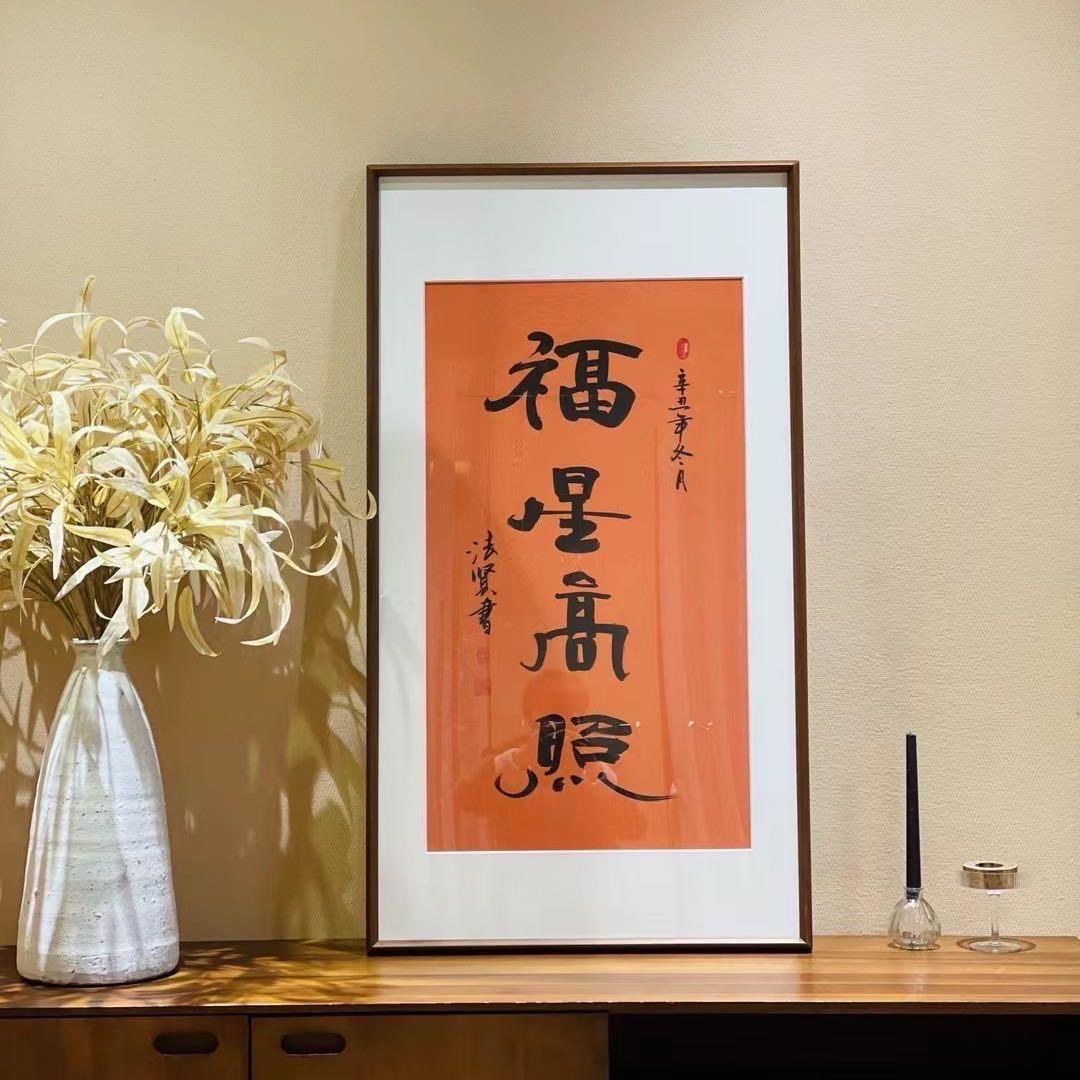 辛丑年冬月
福星高照
法贤書